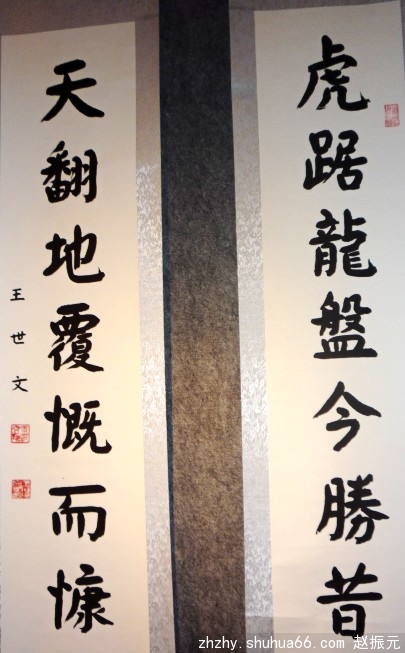 虎踞龍盤今勝昔
天翻地覆慨而慷
王世文
zhzhy.shuhua66.com 赵振元